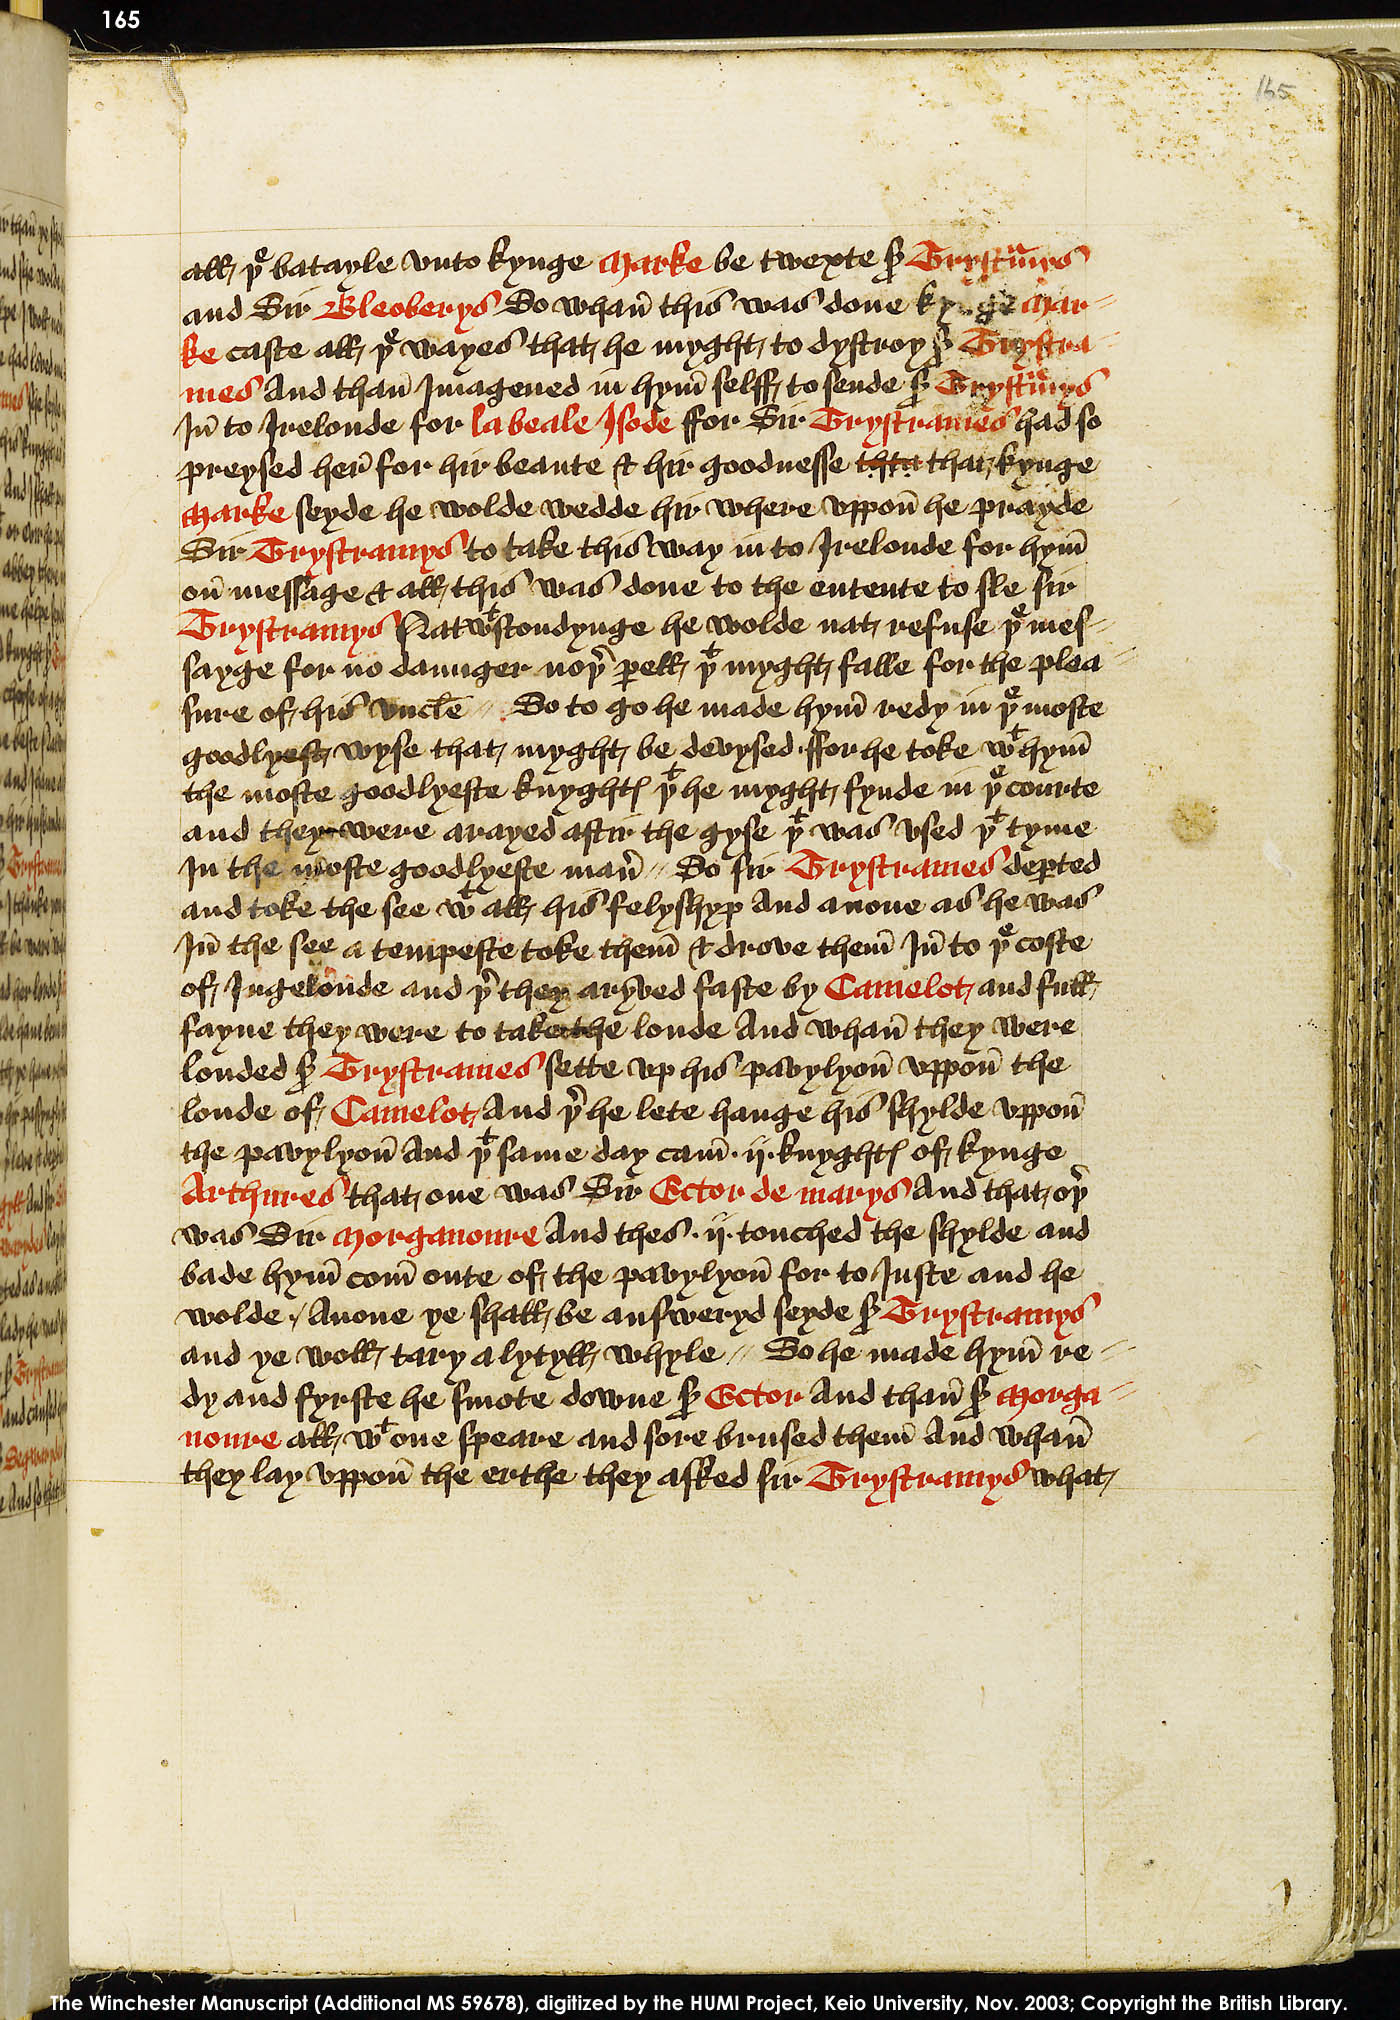 165
165
all þe batayle vnto kynge Marke be twexte sr Trystramys
and Sir Bleoberys So whan̄ this was done kynge Mar-
ke caste all þe wayes that he myght to dystroy sr Trystra-
mes And than̄ Jmagened in hym̄ selff to sende sr Trystramys
Jn̄ to Jrelonde for la beale Jsode ffor Sir Trystrames had so
preysed her̄ for hir beaute & hir goodnesse thta that kynge
Marke seyde he wolde wedde hir where vppon̄ he prayde
Sir Trystramys to take this way in to Jrelonde for hym̄
on̄ message & all this was done to the entente to sle sir
Trystramys Natwtstondynge he wolde nat refuse þe mes-
sayge for no daunger noþr perell þt myght falle for the plea-
sure of his vncle // So to go he made hym̄ redy in þe moste
goodlyest wyse that myght be devysed · ffor he toke wt hym̄
the moste goodlyeste knyghtes þt he myght fynde in þe courte
and they were arayed aftir the gyse þt was vsed þt tyme
Jn the moste goodlyeste manr // So sir Trystrames depted
and toke the see wt all his felyshyp And anone as he was
Jn̄ the see a tempeste toke them̄ & drove them̄ Jn̄ to þe coste
of Jngelonde and þr they aryved faste by Camelot and full
fayne they were to take the londe And whan̄ they were
londed sr Trystrames sette vp his pavylyon̄ vppon̄ the
londe of Camelot And þr he lete hange his shylde vppon̄
the pavylyon̄ And þt same day cam̄ · ij · knyghtes of kynge
Arthures that one was Sir Ector de marys And that oþr
was Sir Morganoure And thes · ij · touched the shylde and
bade hym̄ com̄ oute of the pavylyon̄ for to Juste and he
wolde / Anone ye shall be answeryd seyde sr Trystramys
and ye woll tary a lytyll whyle // So he made hym̄ re-
dy and fyrste he smote downe sr Ector And than̄ sr Morga-
noure all wt one speare and sore brused them̄ And whan̄
they lay vppon̄ the erthe they asked sir Trystramys what
The Winchester Manuscript (Additional MS 59678), digitized by the HUMI Project, Keio University, Nov. 2003; Copyright the British Library.